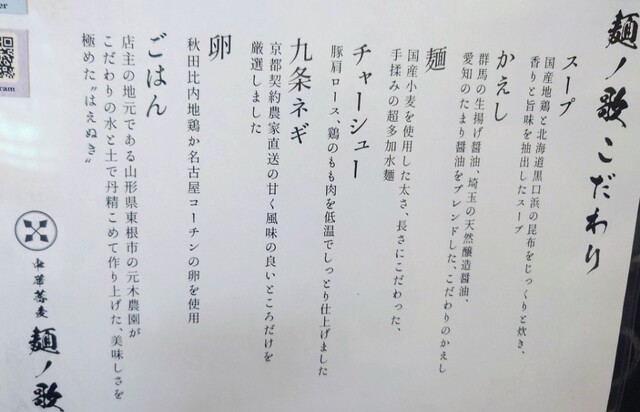 麺ノ歌こだわり
スープ
国産地鶏と北海道黒口浜の昆布をじっくりと炊き、
香りと旨味を抽出したスープ
かえし
群馬の生揚げ醤油、埼玉の天然醸造醤油、
愛知のたまり醤油をブレンドした、こだわりのかえし
麺
国産小麦を使用した太さ、長さにこだわった、
手揉みの超多加水麺
チャーシュー
豚肩ロース、鶏のもも肉を低温でしっとり仕上げました
九条ネギ
京都契約農家直送の甘く風味の良いところだけを
厳選しました
卵
秋田比内地鶏か名古屋コーチンの卵を使用
ごはん
店主の地元である山形県東根市の元木農園が
こだわりの水と土で丹精こめて作り上げた、美味しさを
極めた〝はえぬき〟
中華蕎麦
麺ノ歌
er
ram